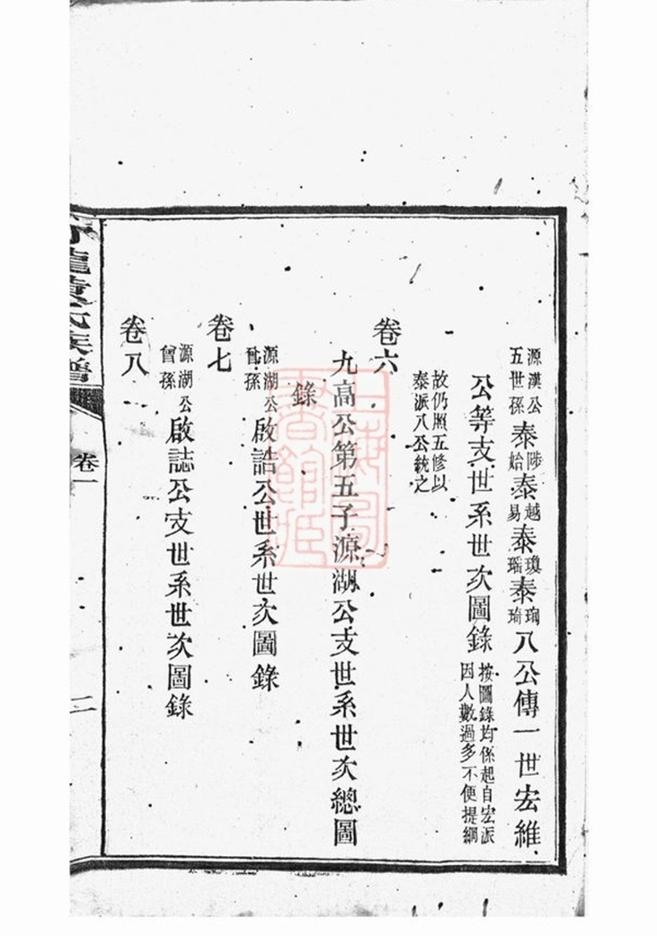 源漢公五世孫泰陟始泰越易泰瓊瑶泰琦八公傳一世宏維
公等支世系世次圖錄按圖錄均係起自宏派因人數過多不便提綱
故仍照五修以泰派八公統之
卷六
九高公第五子源湖公支世系世次總圖
錄
卷七
源湖公曾孫啟誥公世系世次圖錄
卷八
源湖公曾孫啟誌公支世系世次圖錄
龍黃氏族譜
卷一
二